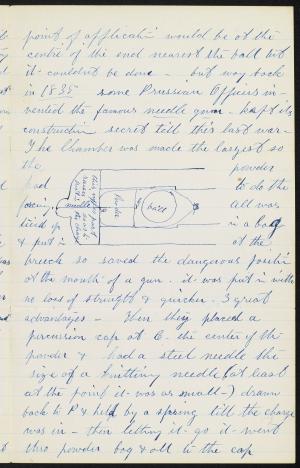 point of applicati would be at the
centre of the end nearest the ball but
it couldn't be done - but way back
in 1835 some Prussian Officers in-
vented the famous needle gun - kept its
construction secret till this last war -
The Chamber was made the largest so
the powder
had to do the
forcing, needle All was
tied up in a bag
& put in at the
Powder
ball
breech so saved the dangerous position
at the mouth of a gun. it was put in with
no loss of strength & quicker. 3 great
advantages - Then they placed a
percussion cap at C. the center of the
powder & had a steel needle the
size of a knitting needle (at least
at the point it was as small -) drawn
back to P & held by a spring till the charge
was in - then letting it go it went
thro powder bag & all to the cap